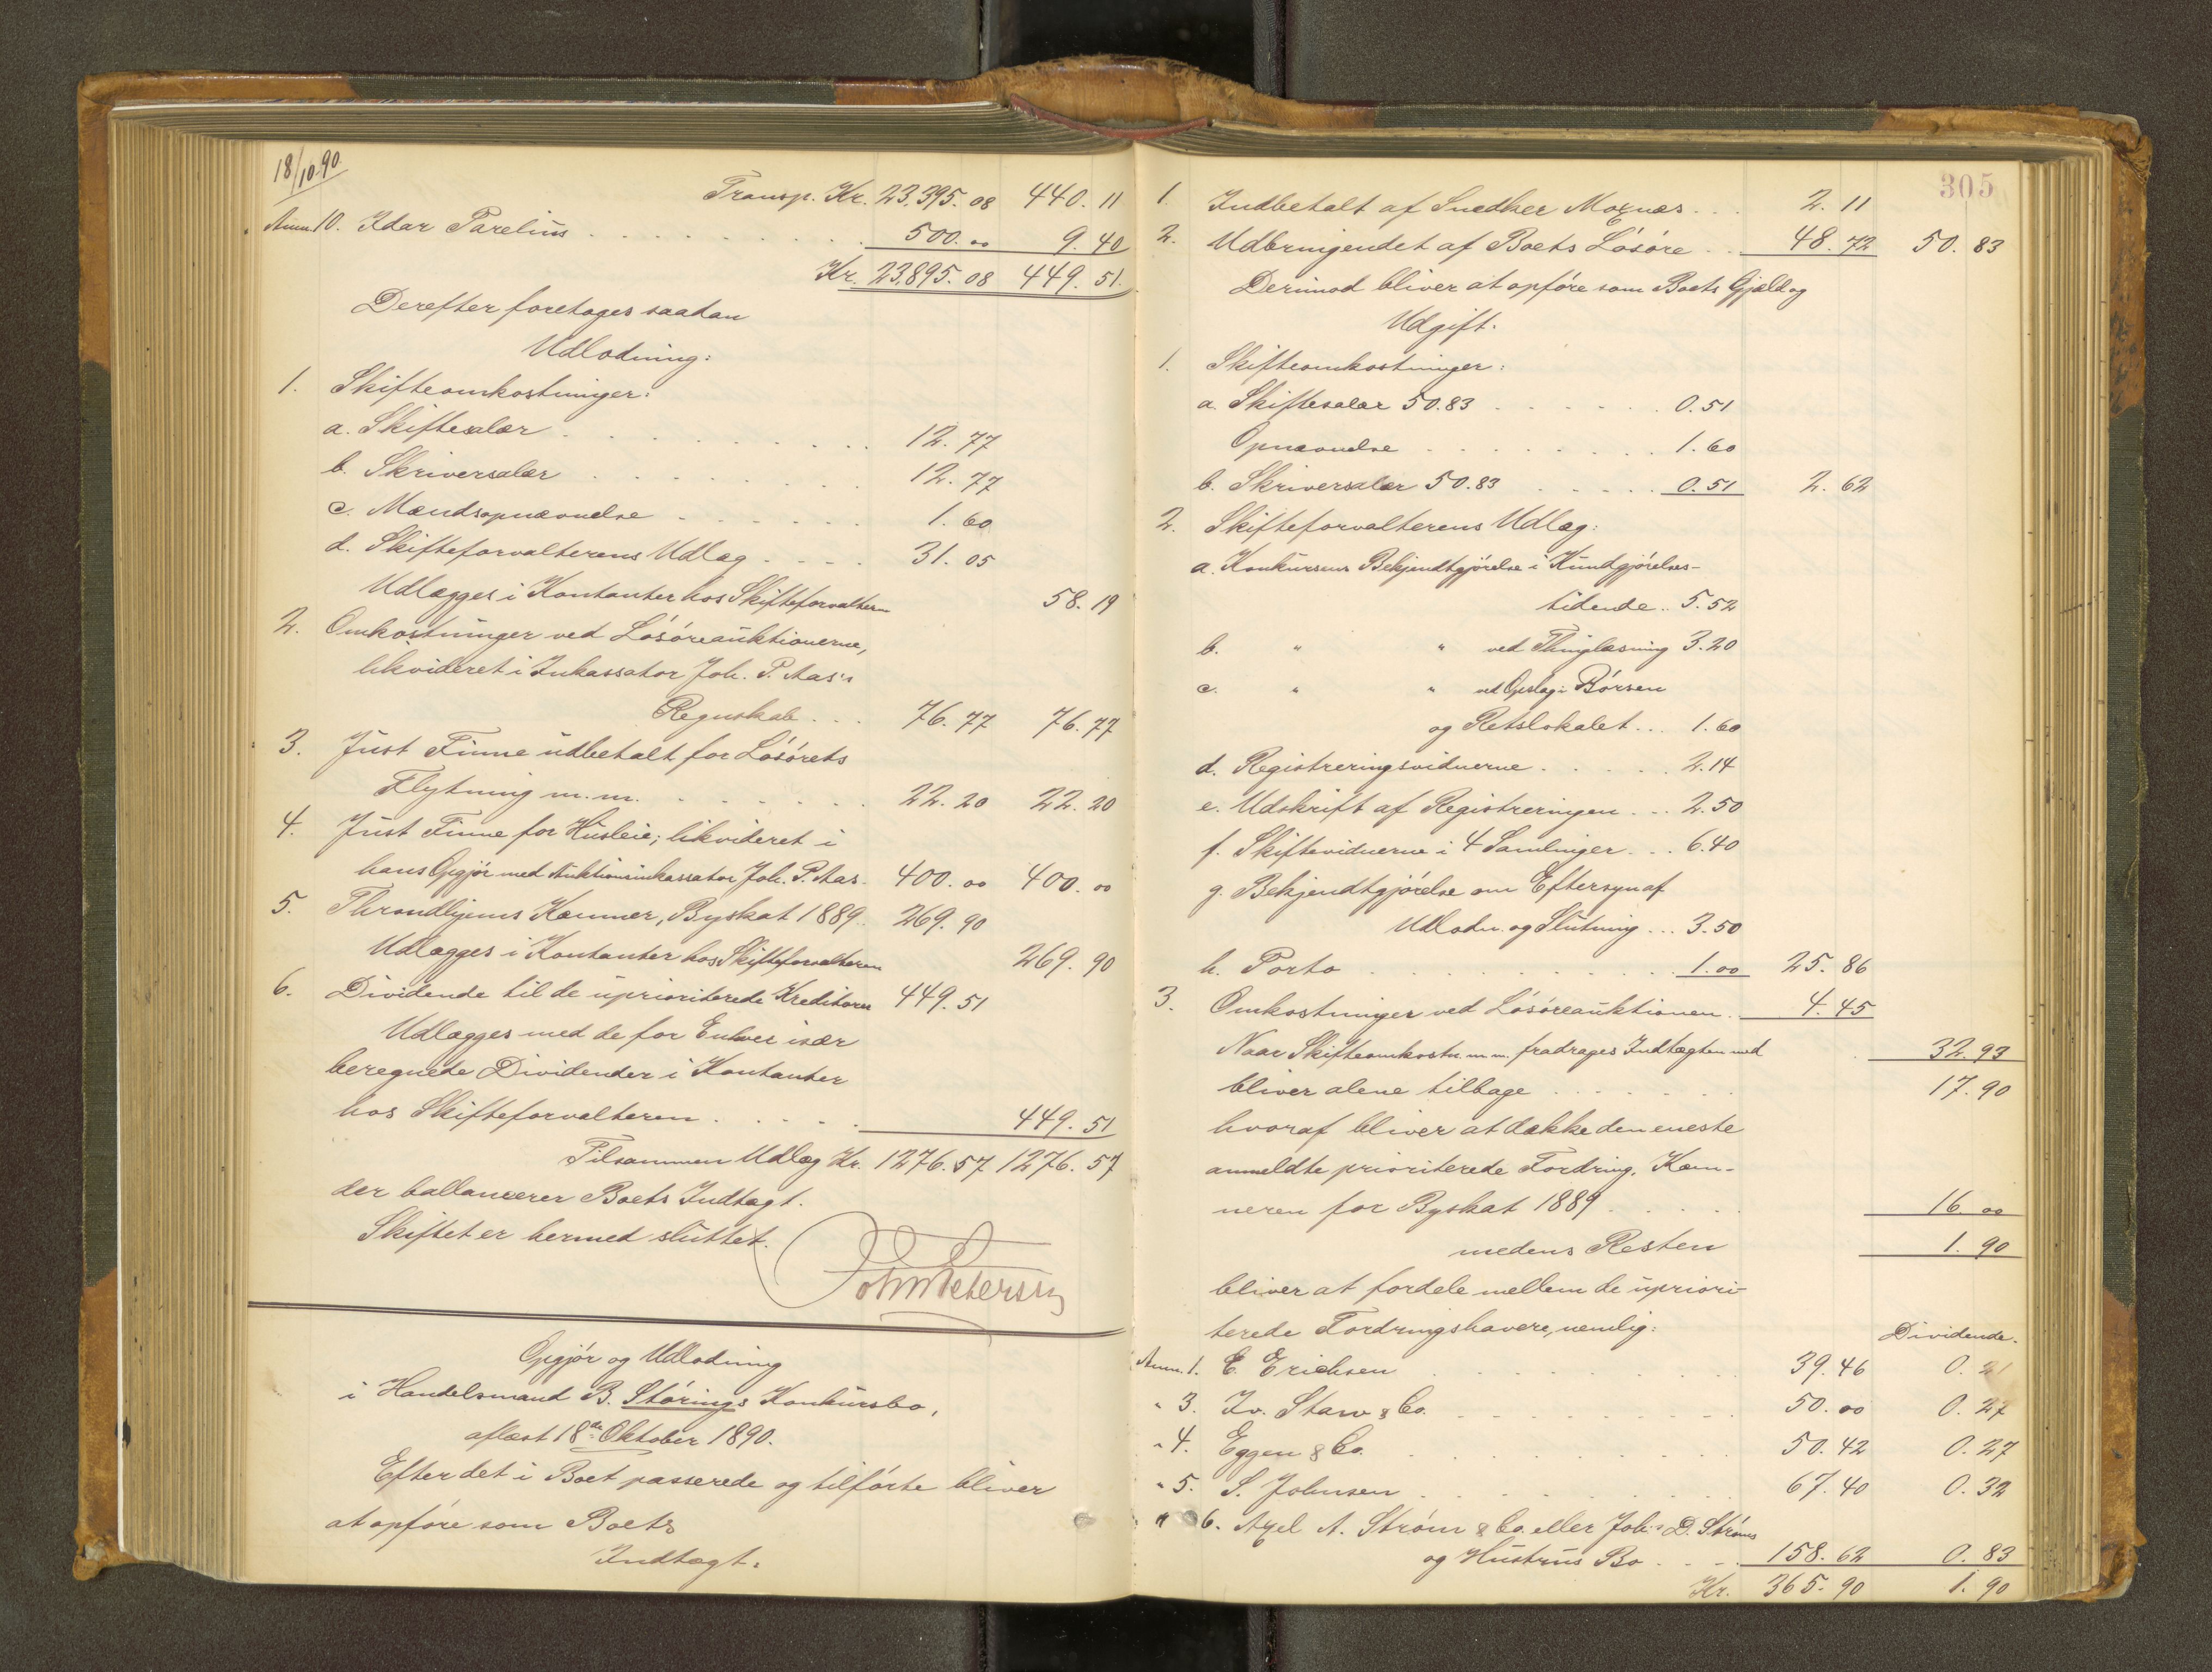 18/10.90.
Transp. Kr. 23,395.08 440.11
Anm. 10. Idar Parelius . . . . . . 500.00 9.40
Kr. 23,895.08 449.51.
Derefter foretages saadan
Udlodning:
1. Skifteomkostninger:
a. Skiftesalær . . . . . . 12.77
b. Skriversalær . . . . . . 12.77
c. Mandsopnævnelse . . . . . 1.60
d. Skifteforvalterens Udlæg . . . . 31.05
Udlægges i Kontanter hos Skifteforvalteren 58.19
2. Omkostninger ved Løsøreauktionerne,
likvideret i Inkassator Joh. P. Aas's
Regnskab . . . 76.77 76.77
3. Just Finne udbetalt for Løsørets
Flytning m.m. . . . . . 22.20 22.20
4. Just Finne for Husleie; likvideret i
hans Opgjør med Auktionsinkassator Joh. P. Aas. 400.00 400.00
5. Throndhjems Kæmner, Byskat 1889. 269.90
Udlægges i Kontanter hos Skifteforvalteren 269.90
6. Dividende til de uprioriterede Kreditorer 449.51
Udlægges med de for Enhver især
beregnede Dividender i Kontanter
hos Skifteforvalteren . . . . . 449.51
Tilsammen Udlæg Kr. 1276.57 1276.57
der ballancerer Boets Indtægt.
Skiftet er hermed sluttet.
Opgjør og Udlodning
i Handelsmand B. Størings Konkursbo,
aflæst 18de Oktober 1890.
Efter det i Boet passerede og tilførte bliver
at opføre som Boets
Indtægt:
305
1. Indbetalt af Snedker Moxnæs . . . 2.11
2. Udbringendet af Boets Løsøre . . 48.72 50.83
Derimod bliver at opføre som Boets Gjæld og
Udgift.
1. Skifteomkostninger:
a. Skiftesalær 50.83 . . . . . 0.51
Opnævnelse . . . . . . 1.60
b. Skriversalær 50.83 . . . . . 0.51 2.62
2. Skifteforvalterens Udlæg:
a. Konkursens Bekjendtgjørelse i Kundgjørelses-
tidende . . 5.52
b. " " ved Thinglæsning 3.20
c. " " ved Opslag i Børsen
og Retslokalet . . . 1.60
d. Registreringsvidnerne . . . . . 2.14
e. Udskrift af Registreringen . . . 2.50
f. Skiftevidnerne i 4 Samlinger . . . 6.40
g. Bekjendtgjørelse om Eftersyn af
Udlodn. og Slutning . . . 3.50
h. Porto . . . . . . . . 1.00 25.86
3. Omkostninger ved Løsøreauktionen . 4.45
Naar Skifteomkostn. m.m. fradrages Indtægten med 32.93
bliver alene tilbage . . . . . . 17.90
hvoraf bliver at dække den eneste
anmeldte prioriterede Fordring, Kæm-
neren for Byskat 1889 . . . . . 16.00
medens Resten 1.90
bliver at fordele mellem de upriori-
terede Fordringshavere, nemlig: Dividende.
Anm. 1. E. Erichsen . . . . . . 39.46 0.21
" 3. Iv. Starv & Co. . . . . . . 50.00 0.27
" 4. Eggen & Co. . . . . . . 50.42 0.27
" 5. S. Johnsen . . . . . . 67.40 0.32
" 6. Axel A. Strøm & Co. eller Joh.s D. Strøms
og Hustrus Bo . . . . 158.62 0.83
Kr. 365.90 1.90